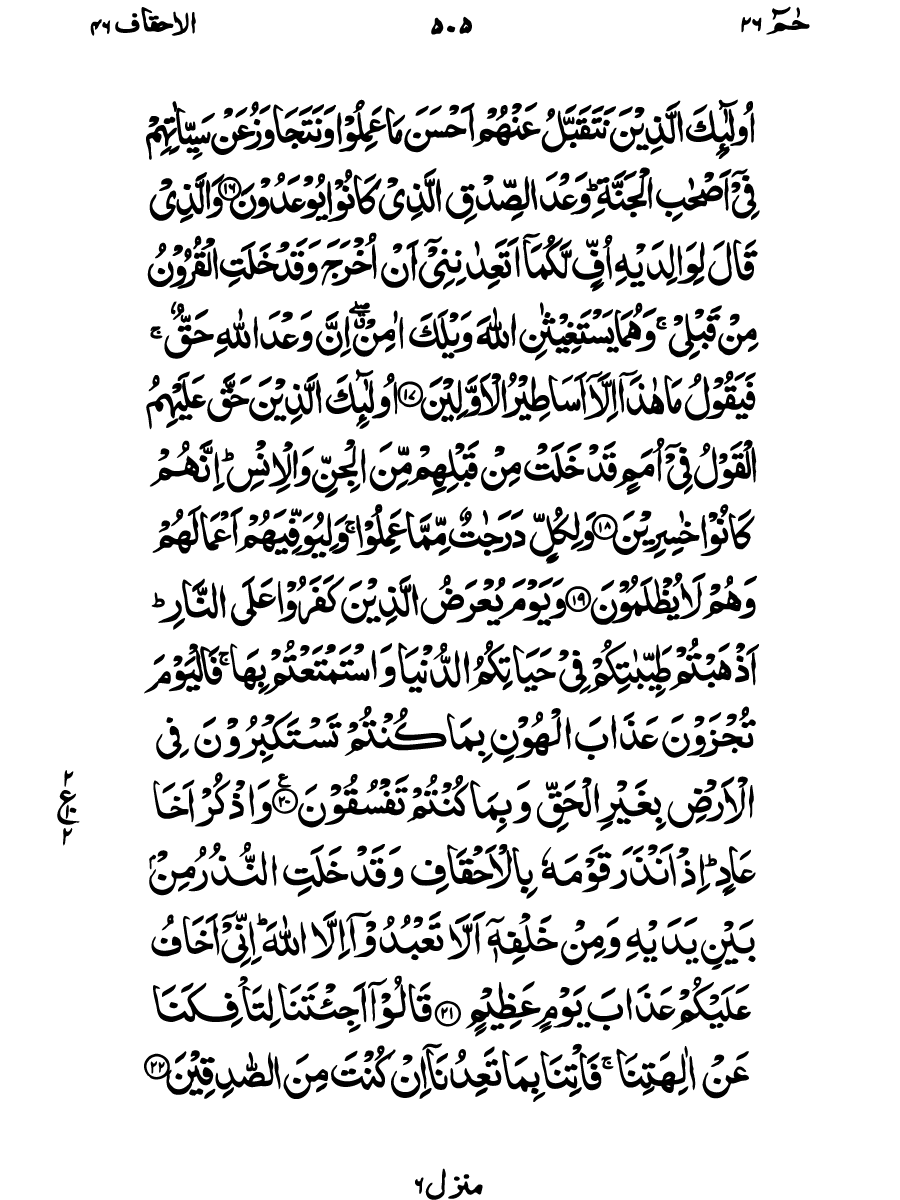 حٰمٓ ٢٦
٥٠٥
الاحقاف ٤٦
اُولٰٓئِكَ الَّذِيْنَ نَتَقَبَّلُ عَنْهُمْ اَحْسَنَ مَا عَمِلُوْا وَنَتَجَاوَزُ عَنْ سَيِّاٰتِهِمْ
فِيْٓ اَصْحٰبِ الْجَنَّةِ ؕ وَعْدَ الصِّدْقِ الَّذِيْ كَانُوْا يُوْعَدُوْنَ ﴿١٦﴾ وَالَّذِيْ
قَالَ لِوَالِدَيْهِ اُفٍّ لَّكُمَاۤ اَتَعِدٰنِنِيْۤ اَنْ اُخْرَجَ وَقَدْ خَلَتِ الْقُرُوْنُ
مِنْ قَبْلِيْ ۚ وَهُمَا يَسْتَغِيْثٰنِ اللّٰهَ وَيْلَكَ اٰمِنْ ۖۗ اِنَّ وَعْدَ اللّٰهِ حَقٌّ ۚ
فَيَقُوْلُ مَا هٰذَاۤ اِلَّاۤ اَسَاطِيْرُ الْاَوَّلِيْنَ ﴿١٧﴾ اُولٰٓئِكَ الَّذِيْنَ حَقَّ عَلَيْهِمُ
الْقَوْلُ فِيْۤ اُمَمٍ قَدْ خَلَتْ مِنْ قَبْلِهِمْ مِّنَ الْجِنِّ وَالْاِنْسِ ؕ اِنَّهُمْ
كَانُوْا خٰسِرِيْنَ ﴿١٨﴾ وَلِكُلٍّ دَرَجٰتٌ مِّمَّا عَمِلُوْا ۚ وَلِيُوَفِّيَهُمْ اَعْمَالَهُمْ
وَهُمْ لَا يُظْلَمُوْنَ ﴿١٩﴾ وَيَوْمَ يُعْرَضُ الَّذِيْنَ كَفَرُوْا عَلَى النَّارِ ؕ
اَذْهَبْتُمْ طَيِّبٰتِكُمْ فِيْ حَيَاتِكُمُ الدُّنْيَا وَاسْتَمْتَعْتُمْ بِهَا ۚ فَالْيَوْمَ
تُجْزَوْنَ عَذَابَ الْهُوْنِ بِمَا كُنْتُمْ تَسْتَكْبِرُوْنَ فِي
الْاَرْضِ بِغَيْرِ الْحَقِّ وَبِمَا كُنْتُمْ تَفْسُقُوْنَ ﴿٢٠﴾ وَاذْكُرْ اَخَا
٢
ع
٢
عَادٍ ؕ اِذْ اَنْذَرَ قَوْمَهٗ بِالْاَحْقَافِ وَقَدْ خَلَتِ النُّذُرُ مِنْۢ
بَيْنِ يَدَيْهِ وَمِنْ خَلْفِهٖۤ اَلَّا تَعْبُدُوْۤا اِلَّا اللّٰهَ ؕ اِنِّيْۤ اَخَافُ
عَلَيْكُمْ عَذَابَ يَوْمٍ عَظِيْمٍ ﴿٢١﴾ قَالُوْۤا اَجِئْتَنَا لِتَاْفِكَنَا
عَنْ اٰلِهَتِنَا ۚ فَاْتِنَا بِمَا تَعِدُنَاۤ اِنْ كُنْتَ مِنَ الصّٰدِقِيْنَ ﴿٢٢﴾
منزل ٦